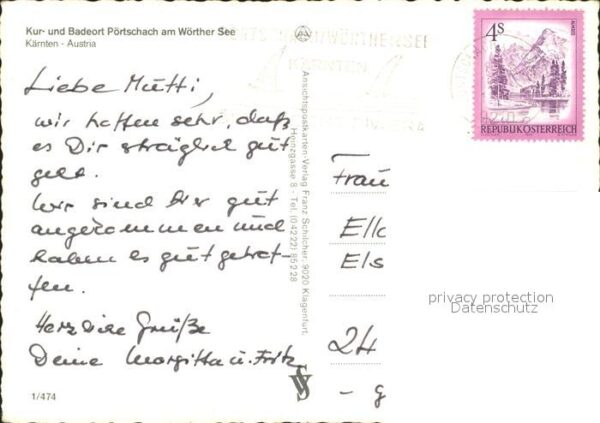 Kur- und Badeort Pörtschach am Wörther See
Kärnten - Austria
Liebe Mutti,
wir hoffen sehr, daß
es Dir
gut
geht.
Wir sind hier gut
angekommen und
haben es gut getrof-
fen.
Herzliche Grüße
Deine Margitta u. Fritz
1/474
Ansichtspostkarten-Verlag Franz Schilcher, 9020 Klagenfurt,
Heinzgasse 8 - Tel. (04222) 85228
KÄRNTEN
4S
REPUBLIK ÖSTERREICH
Frau
Els
24
- g
privacy protection
Datenschutz